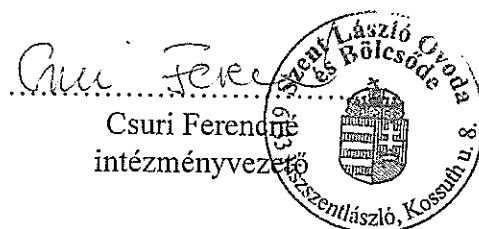 Csuri Feren
Csuri Ferencné
intézményvezető
Szent László Óvoda
és Bölcsőde
szszentlászló, Kossuth u. 8.